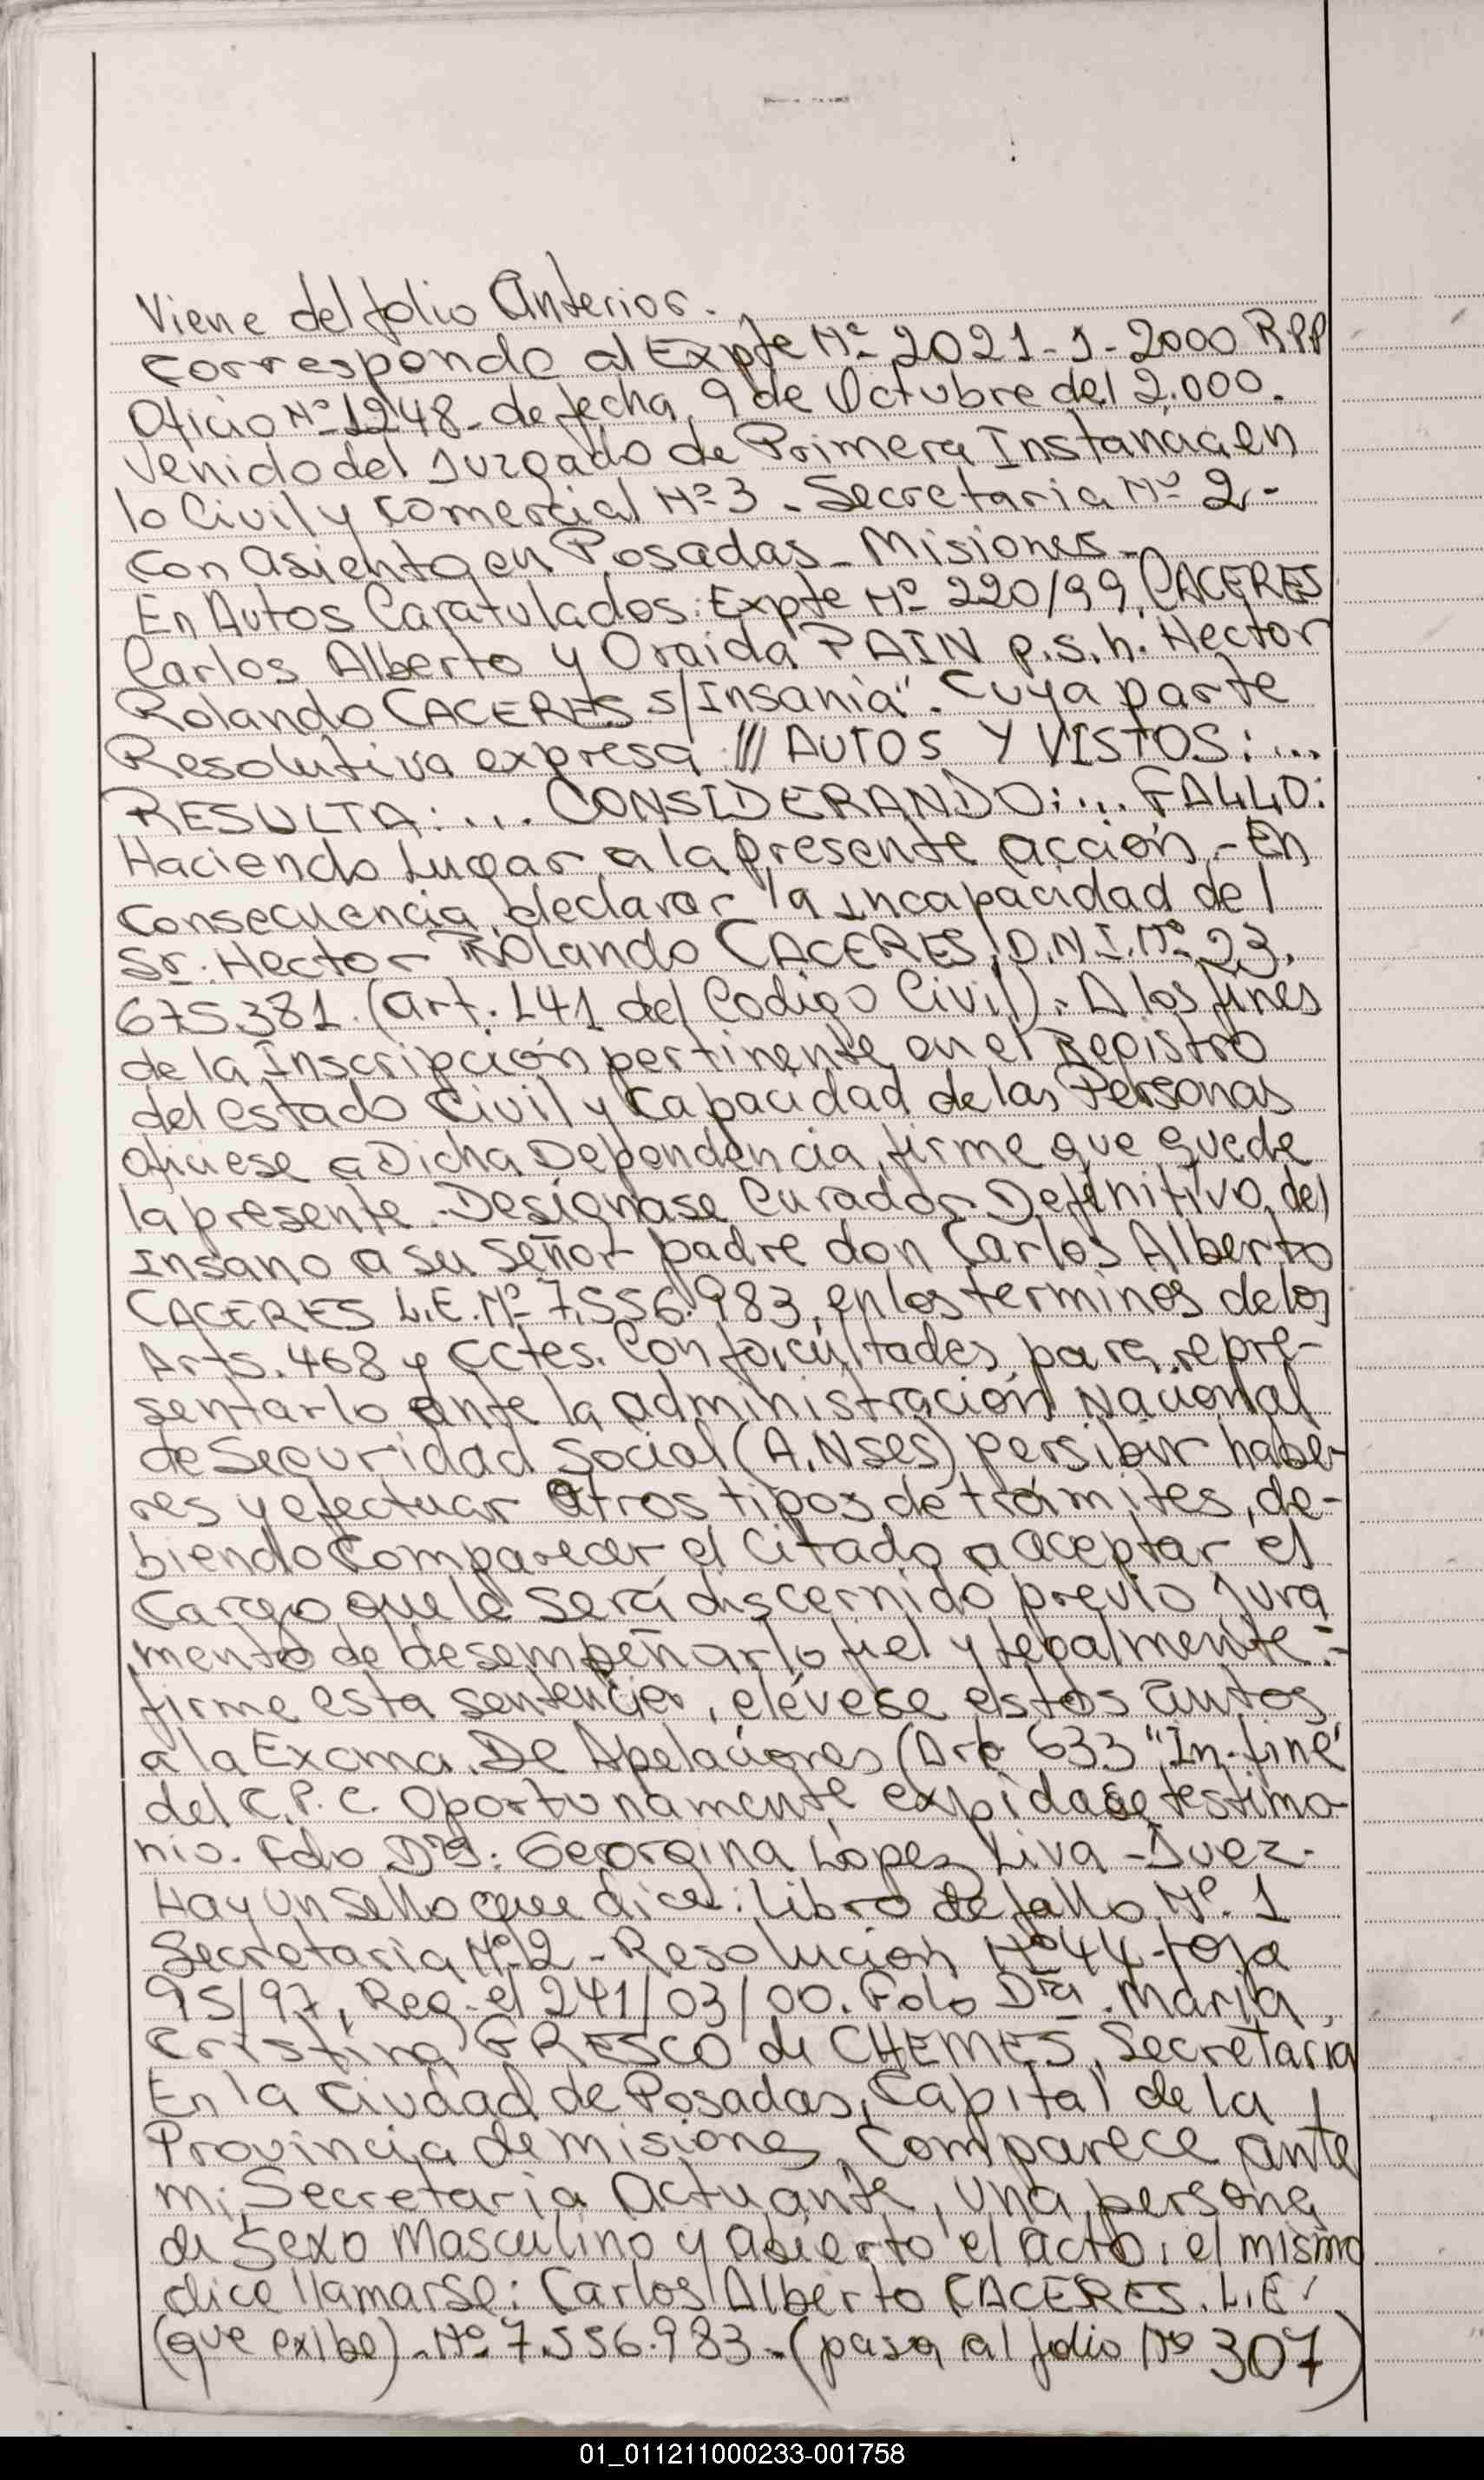 Viene del folio Anterior.
Corresponde al Expte Nº 2021-J-2000 RPP
Oficio Nº 1248- de fecha, 9 de Octubre del 2.000.
Venido del Juzgado de Primera Instancia en
lo Civil y Comercial Nº 3 - Secretaria Nº 2.-
Con asiento en Posadas - Misiones -
En Autos Caratulados: Expte Nº 220/99, CACERES
Carlos Alberto y Oraida PAIN p.s.h. Hector
Rolando CACERES s/Insania". Cuya parte
Resolutiva expresa /// AUTOS Y VISTOS: ...
RESULTA: ... CONSIDERANDO: ... FALLO:
Haciendo Lugar a la presente acción - En
Consecuencia, declarar la incapacidad del
Sr. Hector ROLando CACERES, D.N.I. Nº 23.
675.381. (art. 141 del Codigo Civil). A los fines
de la Inscripción pertinente en el Registro
del estado Civil y Capacidad de las Personas
ofiuese a Dicha Dependencia, firme que quede
la presente. Desígnase Curador Definitivo del
insano a su Señor padre don Carlos Alberto
CACERES L.E. Nº 7.556.983, en los terminos de los
Arts. 468 y cctes. Con facultades para repre-
sentarlo ante la administración Nacional
de Seguridad Social (A.NSES) persibir habe-
res y efectuar otros tipos de trámites, de-
biendo Comparecer el Citado a aceptar el
Cargo que le será discernido previo Jura
mento de desempeñarlo fiel y legalmente.-
firme esta sentencia, elévese estos autos
a la Excma. De Apelaciones (Art 633 "In-fine"
del C.P.C. Oportunamente expidase testimo-
nio. Fdo Dra: Georgina López Liva - Juez.
Hay un Sello que dice: Libro de fallo Nº. 1
Secretaria Nº 2 - Resolución Nº 44 - foja
95/97, Reg. el 241/03/00. Fdo Dra. Maria
Cristina GRESCO de CHEMES, Secretaria
En la Ciudad de Posadas, Capital de la
Provincia de misiones, Comparece ante
mi, Secretaria Actuante, una persona
de Sexo Masculino y abierto el acto, el mismo
dice llamarse: Carlos Alberto CACERES. L.E.
(que exibe) - Nº 7.556.983 - (pasa al folio Nº 307)
01_011211000233-001758